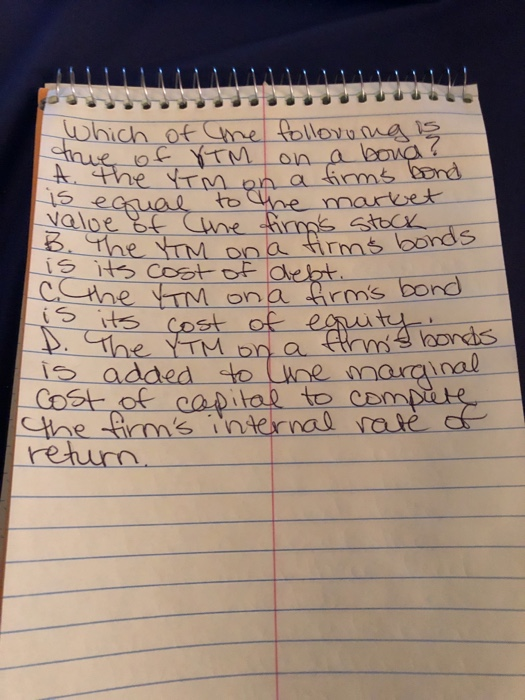 Which of the following is
true of YTM on a bond?
A. the YTM on a firm's bond
is equal to the market
value of the firm's stock
B. The YTM on a firm's bonds
is its cost of debt.
C. the YTM on a firm's bond
is its cost of equity.
D. The YTM on a firm's bonds
is added to the marginal
cost of capital to compute
the firm's internal rate of
return.